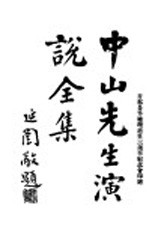 中山先生演
說全集
延闓敬題